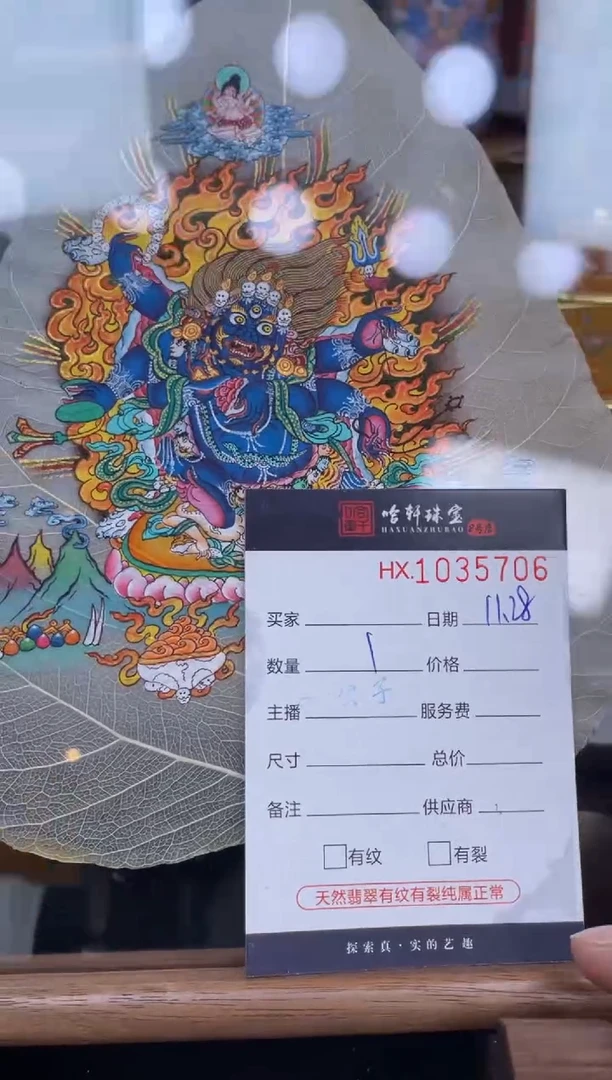 哈轩珠宝
HAXUANZHUBAO
HX.1035706
买家 日期 11.28
数量 1 价格
主播 服务费
尺寸 总价
备注 供应商
有纹 有裂
天然翡翠有纹有裂纯属正常
探索真·实的艺趣